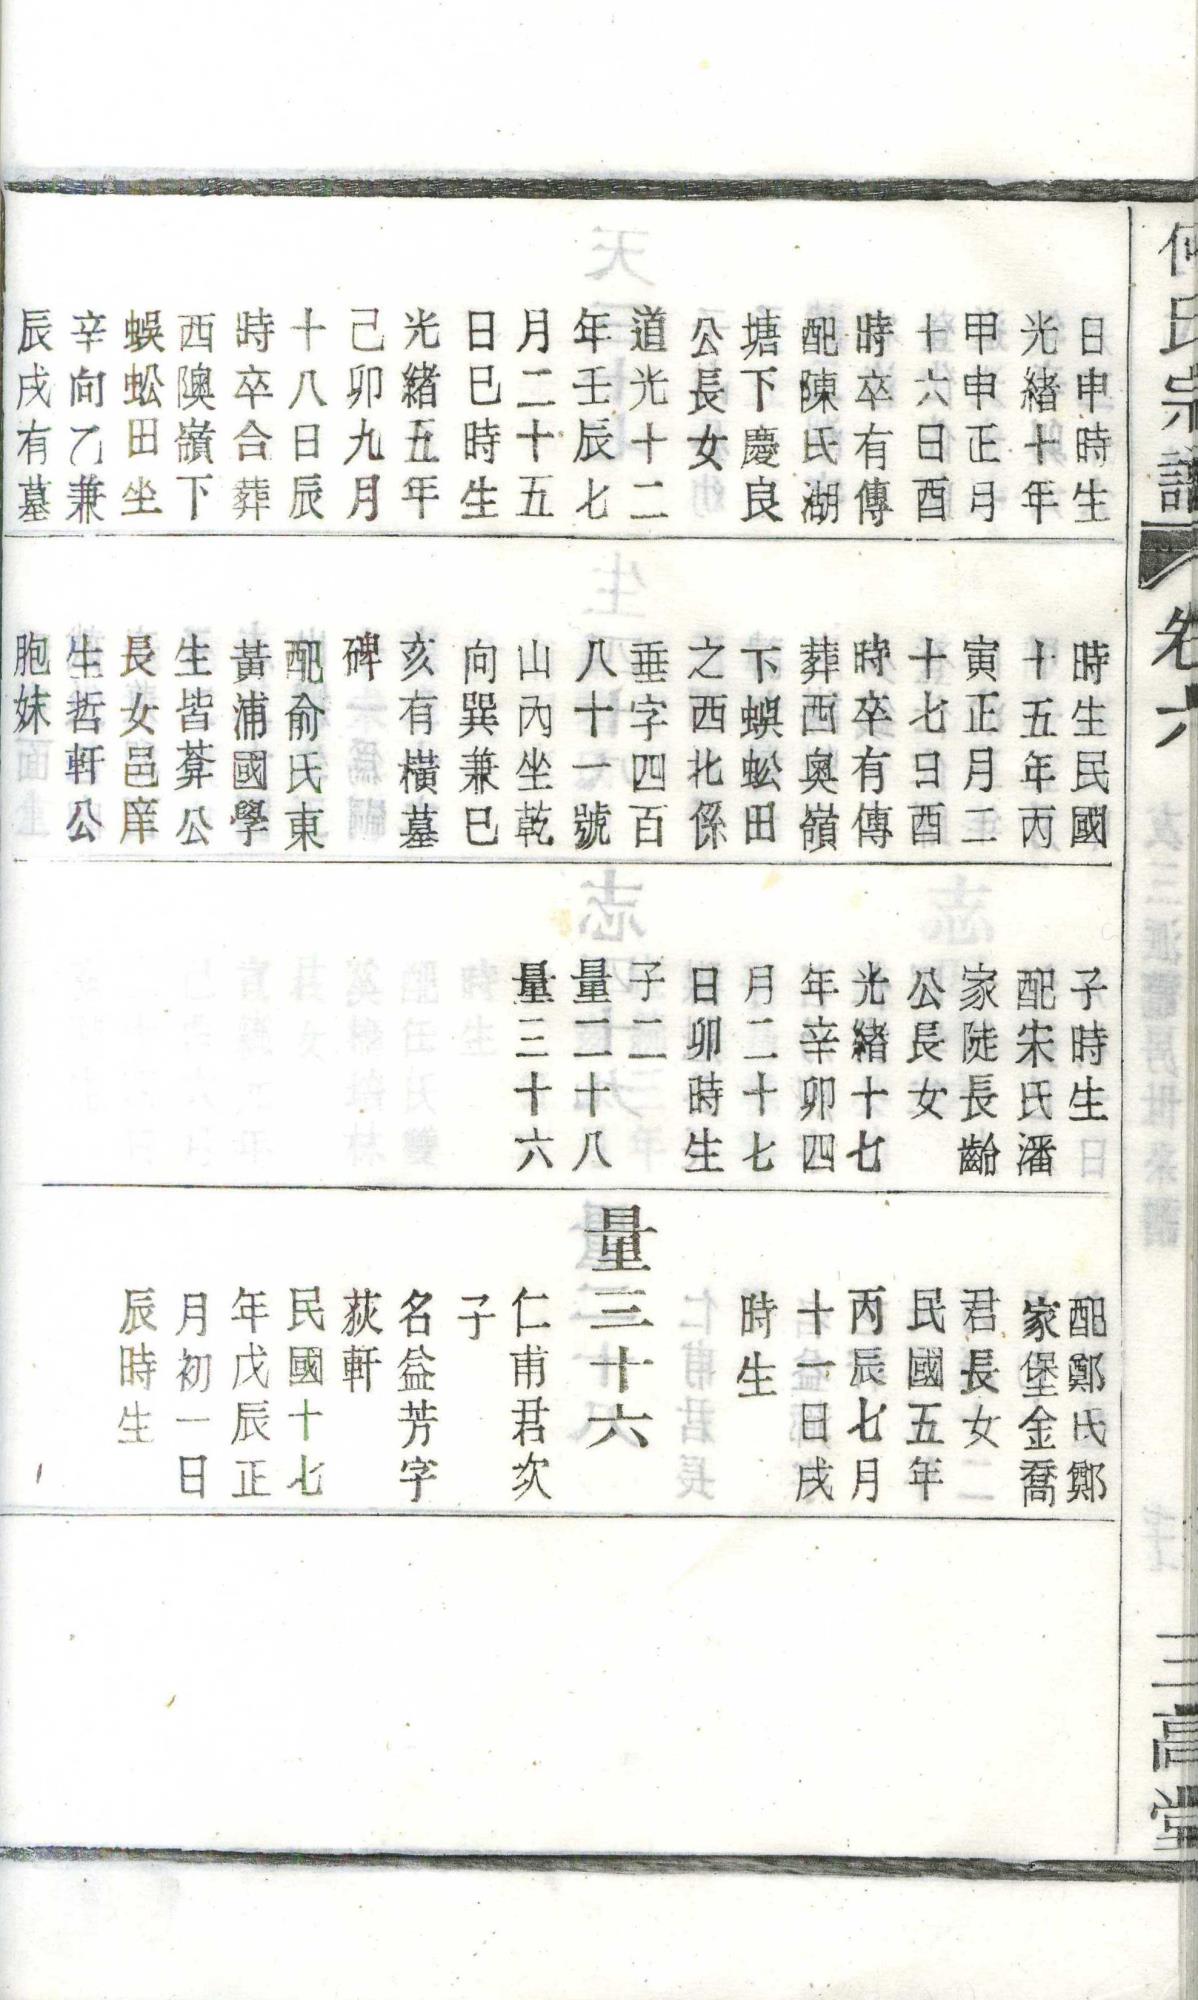 何氏宗譜
卷六
三高堂
日申時生
光緒十年
甲申正月
十六日酉
時卒有傳
配陳氏湖
塘下慶良
公長女
道光十二
年壬辰七
月二十五
日巳時生
光緒五年
己卯九月
十八日辰
時卒合葬
西隩嶺下
蜈蚣田坐
辛向乙兼
辰戌有墓
時生民國
十五年丙
寅正月二
十七日酉
時卒有傳
葬西奥嶺
下蜈蚣田
之西北係
垂字四百
八十一號
山內坐乾
向巽兼巳
亥有橫墓
碑
配俞氏東
黃浦國學
生皆葬公
長女邑庠
生哲軒公
胞妹
子時生
配宋氏潘
家陡長齡
公長女
光緒十七
年辛卯四
月二十七
日卯時生
子二
量二十八
量三十六
配鄭氏鄭
家堡金喬
君長女
民國五年
丙辰七月
十一日戌
時生
量三十六
仁甫君次
子
名益芳字
荻軒
民國十七
年戊辰正
月初一日
辰時生